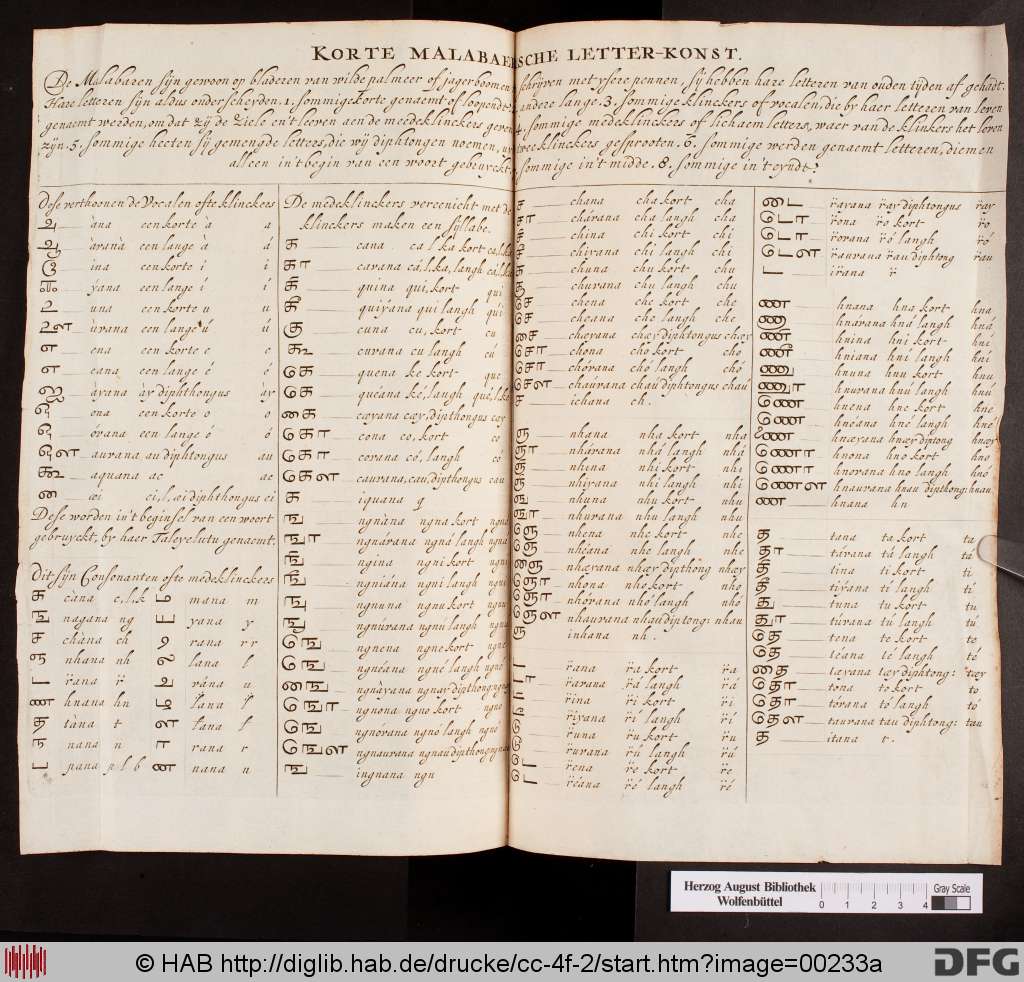 KORTE MALABAERSCHE LETTER-KONST.
De Malabaren sijn gewoon op bladeren van wilde palmeer of jagerboomen schrijven met ysere pennen, sij hebben hare letteren van ouden tijden af gehadt.
Hare letteren sijn aldus onderscheyden. 1. sommige korte genaemt of loopende andere lange. 3. sommige klinckers of vocalen, die by haer letteren van leven
genaemt werden, om dat zij de ziele en't leeven aen de meedeklinckers geven 4. sommige medeklinckers of lichaem letters, waer van de klinkers het leven
zijn. 5. sommige heeten sij gemengde letters, die wij diphtongen noemen, uyt twee klinckers gesprooten. 6. sommige werden genaemt letteren, diemen
alleen in't begin van een woort gebruyckt. sommige in't midde. 8. sommige in't eyndt.
Dese verthoonen de Vocalen ofte klinckers
àna een korte à a
àvanà een lange á á
ina een korte i i
ÿana een lange í í
una een korte u u
ùvana een lange ú ú
எ ena een korte e e
eana een lange é é
àyana àÿ diphthongus àÿ
ona een korte o o
óvana een lange ó ó
auvana au diphtongus au
aquana ac ac
Dese worden in't beginsel van een woort
gebruyckt, by haer Taleyelutu genaemt.
Dit sijn Consonanten ofte medeklinckers
க càna c,l,k ம mana m
ங nagana ng ய yana y
ச chàna ch ழ rana rr
ஞ nhana nh ல lana l
ட r̈ana r̈ வ vána u
ண hnana hn
த tàna t
ந nana n ர rana r
ப pana p l b ன nana n
De medeklinckers vereenicht met de
klinckers maken een sÿllabe.
க cana ca l ka kort ca,l,ka
கா cavana cá,l,ka, langh cá,l,ka
கி quina qui, kort qui
கீ quiÿana qui langh quí
கு cuna cu, kort cu
கூ cuvana cu langh cú
கெ quena ke kort que
கெ queána ké, langh qué, l, ke
கை cayana cæy, dipthongus cæy
கொ cona co, kort co
கொ covana có, langh có
கௌ cauvana, cau, dipthongus cau
க iquana q
ங ngnàna ngna kort ngna
ஙா ngnávana ngná langh ngná
ஙி ngina ngni kort ngni
ஙீ ngniána ngni langh ngni
ஙு ngnuna ngnu kort ngnu
ஙூ ngnúvana ngnú langh ngnu
ஙெ ngnena ngne kort ngne
ஙெ ngnéana ngné langh ngné
ஙை ngnàyana ngnaÿ dipthongus
ஙொ ngnona ngno kort ngno
ஙொ ngnóvana ngnó langh ngnó
ஙௌ ngnauvana ngnau dipthong ngnau
ங ingnana ngn
ச chana cha kort cha
சா chávana cha langh cha
சி china chi kort chi
சீ chiyana chi langh chi
சு chuna chu kort chu
சூ chuvana chu langh chu
செ chena che kort che
செ cheana che langh che
சை chæyana chæÿ dipthongus chæÿ
சொ chona cho kort cho
சொ chóvana chó langh chó
சௌ chauvana chau dipthongus chau
ச ichana ch.
ஞ nhana nha kort nha
ஞா nhávana nhá langh nhá
ஞி nhina nhi kort nhi
ஞீ nhiyana nhi langh nhi
ஞு nhuna nhu kort nhu
ஞூ nhuvana nhu langh nhu
ஞெ nhena nhe kort nhe
ஞெ nheana nhe langh nhe
ஞை nhæyana nhæÿ dipthong nhæÿ
ஞொ nhona nho kort nho
ஞொ nhóvana nhó langh nhó
ஞௌ nhauvana nhau dipthong: nhau
ஞ inhana nh.
ட r̈ana r̈a kort r̈a
டா r̈avana r̈á langh r̈á
டி r̈ina r̈i kort r̈i
டீ r̈iyana r̈í langh r̈í
டு r̈una r̈u kort r̈u
டூ r̈uvana r̈ú langh r̈ú
டெ r̈ena r̈e kort r̈e
டெ r̈éana r̈é langh r̈é
டை r̈ayana r̈aÿ diphtongus r̈aÿ
டொ r̈ona r̈o kort r̈o
டொ r̈ovana r̈ó langh r̈ó
டௌ r̈auvana r̈au diphtong r̈au
ட ir̈ana r̈
ண hnana hna kort hna
ணா hnávana hná langh hná
ணி hnina hni kort hni
ணீ hniana hni langh hní
ணு hnuna hnu kort hnu
ணூ hnuvana hnú langh hnú
ணெ hnena hne kort hne
ணெ hneána hné langh hné
ணை hnæyana hnæÿ diptong hnæÿ
ணொ hnona hno kort hno
ணொ hnóvana hno langh hnó
ணௌ hnauvana hnau dipthong: hnau
ண hnana hn
த tana ta kort ta
தா távana tá langh tá
தி tina ti kort ti
தீ tiyana ti langh tí
து tuna tu kort tu
தூ túvana tú langh tú
தெ tena te kort te
தெ téana té langh té
தை tæyana tæÿ diphtong: tæÿ
தொ tona to kort to
தொ tóvana tó langh tó
தௌ tauvana tau diphtong: tau
த itana t.
Herzog August Bibliothek
Wolfenbüttel
0 1 2 3 4
Gray Scale
© HAB http://diglib.hab.de/drucke/cc-4f-2/start.htm?image=00233a
DFG